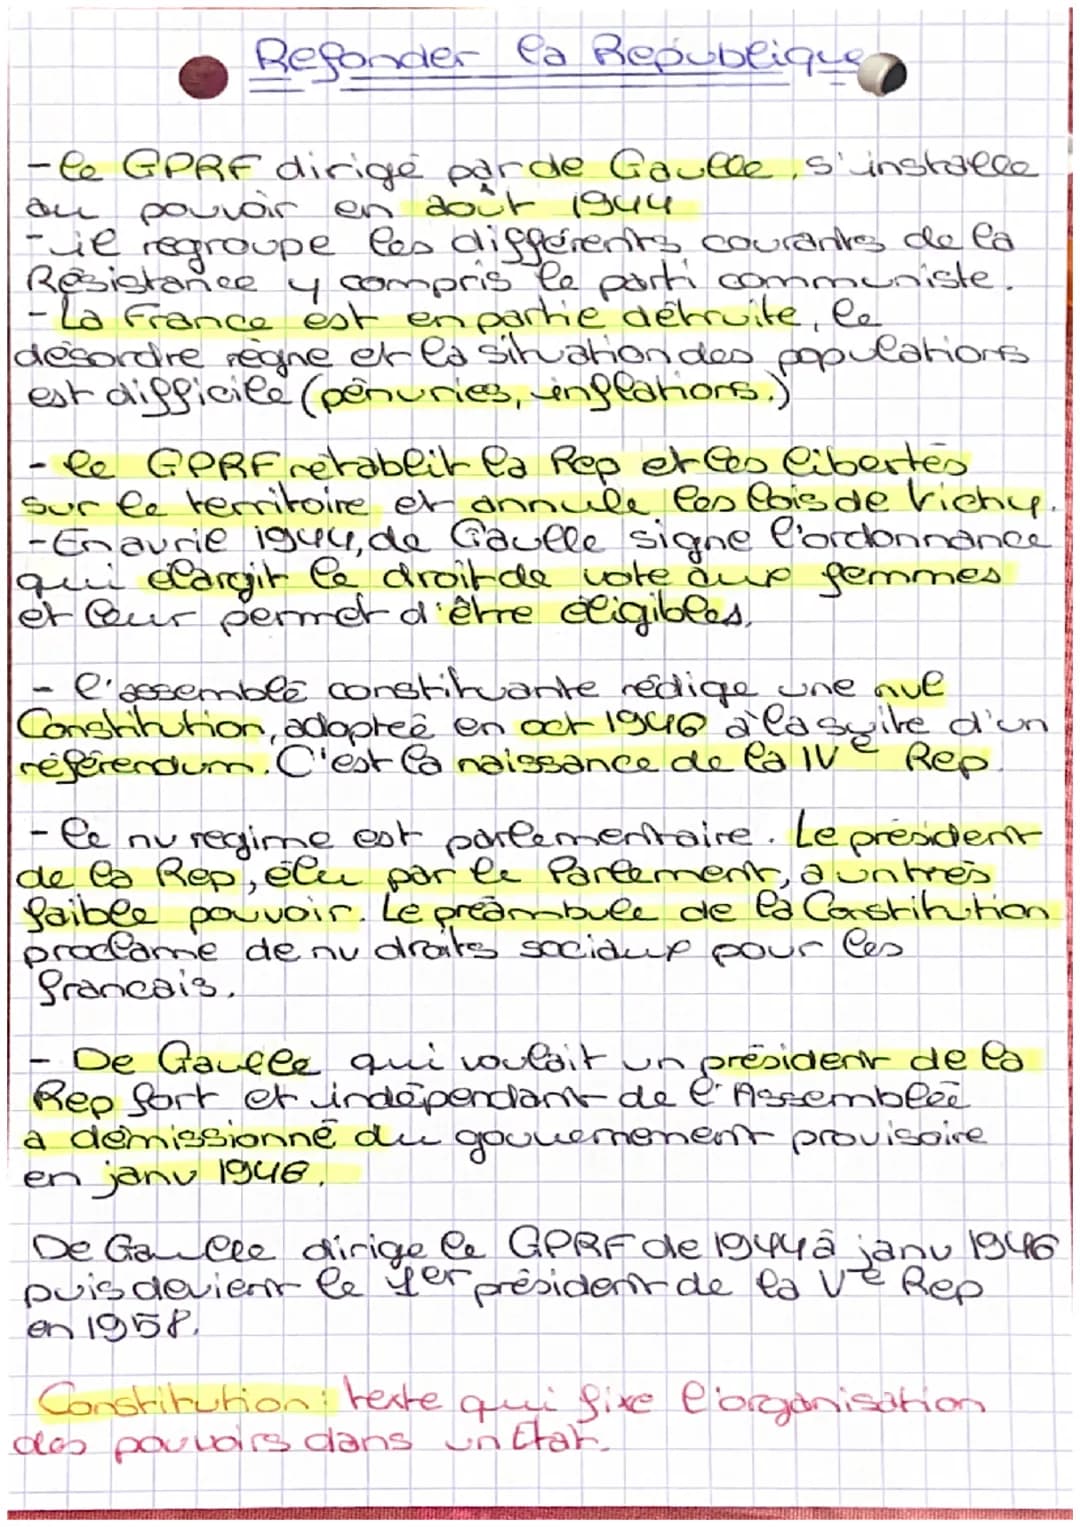 Refonder la République
- le GPRF dirigé par de Gaulle, s'installe
au pouvoir en août 1944
- il regroupe les différents courants de la
Résistance y compris le parti communiste.
- La France est en partie détruite, le
désordre règne et la situation des populations
est difficile (pénuries, inflations.)
- le GPRF rétablit la Rep et les libertés
sur le territoire et annule les lois de Vichy.
- En avril 1944, de Gaulle signe l'ordonnance
qui élargit le droit de vote aux femmes
et leur permet d'être éligibles.
- l'assemblé constituante rédige une nvl
Constitution, adopteé en oct 1946 à la suite d'un
référendum. C'est la naissance de la IVe Rep.
- le nv regime est parlementaire. Le président
de la Rep, élu par le Parlement, a un très
faible pouvoir. Le préambule de la Constitution
proclame de nv droits sociaux pour les
francais.
- De Gaulle qui voulait un président de la
Rep fort et indépendant de l'Assemblée
a démissionné du gouvernement provisoire
en janv 1946.
De Gaulle dirige le GPRF de 1944 à janv 1946
puis devient le 1er président de la Ve Rep
en 1958.
Constitution : texte qui fixe l'organisation
des pouvoirs dans un Etat.